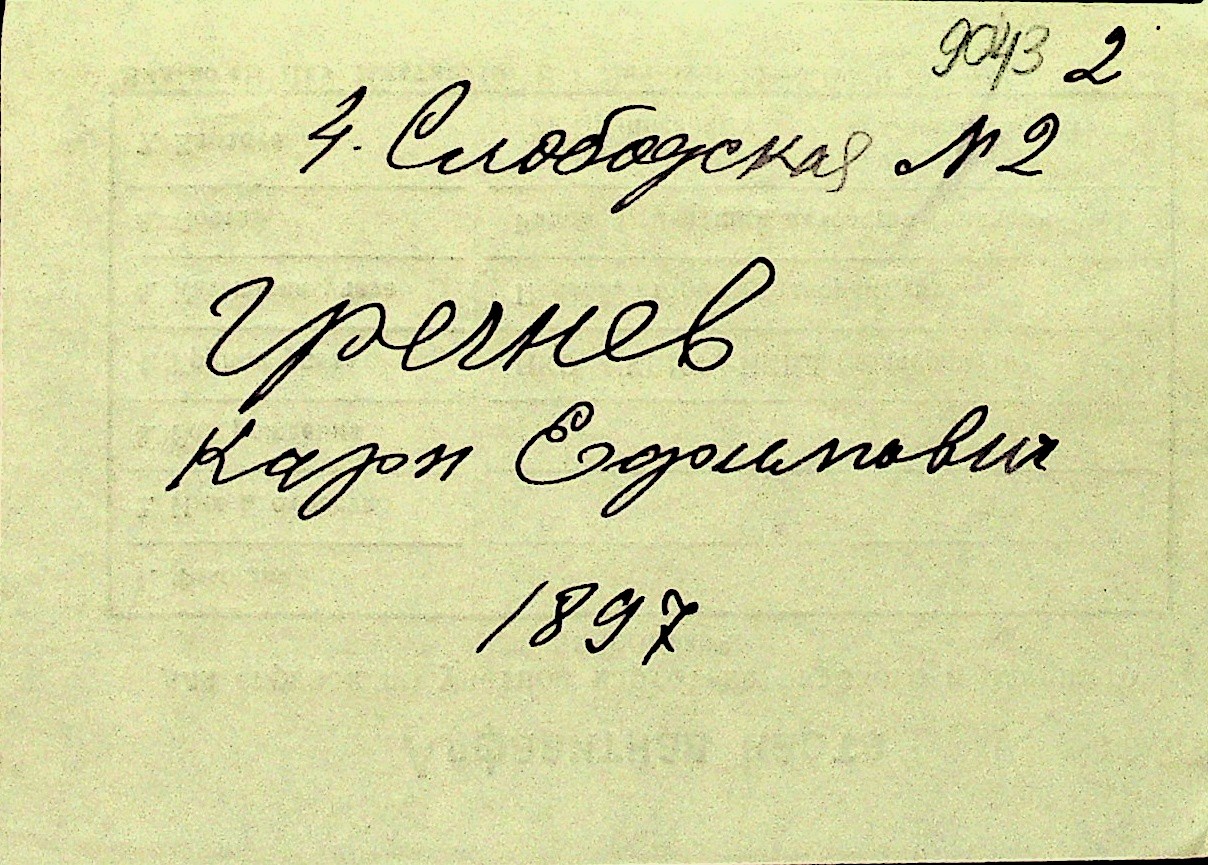 9043 2
4. Слободская № 2
Гречнев
Карп Ефимович
1897